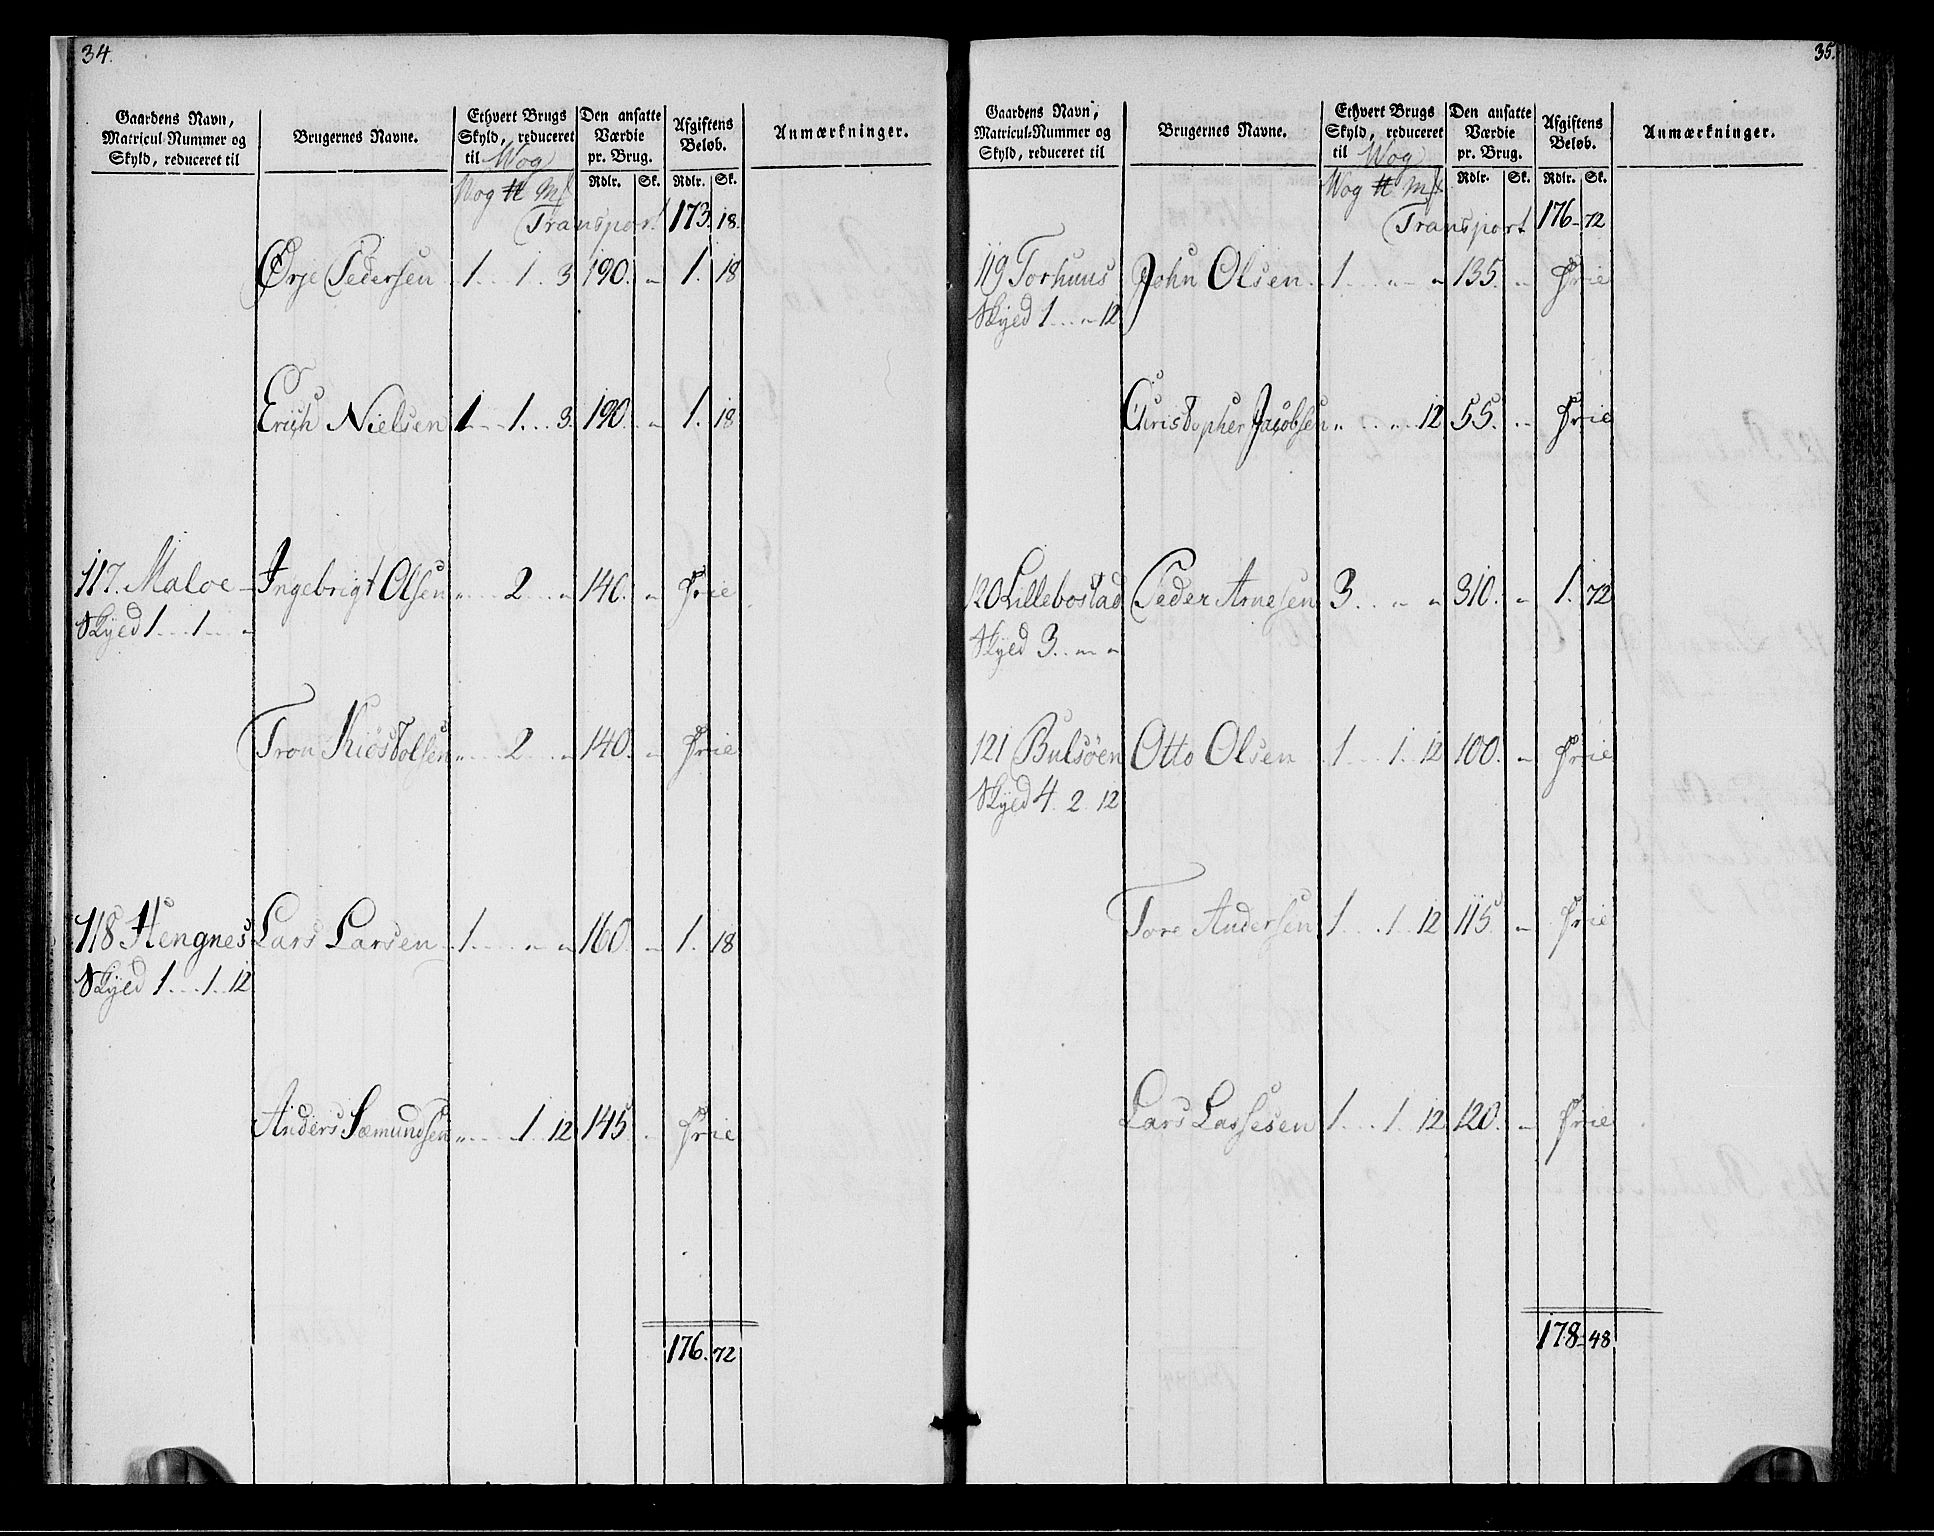 34.
Gaardens Navn, Matricul-Nummer og Skyld, reduceret til
Brugernes Navne.
Ethvert Brugs Skyld, reduceret til Wog
Den ansatte Værdie pr. Brug.
Afgiftens Beløb.
Anmærkninger.
Wog ℔ Mk Rdlr. Sk. Rdlr. Sk.
Transport 173. 18.
Ørje Pedersen 1 . . 1 . 3 190. - 1. 18
Erich Nielsen 1 - - 1 . . 3. 190. - 1. 18
117. Maloe - Ingebrigt Olsen " . . . 2 . . " 140. " Frie
Skyed 1 . . . 1 . . . "
Tron Kiøstolsen " . . . 2 . . " 140. " Frie
118 Hengnes Lars Larsen 1 . . . " " 160. - 1. 18
Skyed 1 . . . 1 . . 12
Anders Sæmundsen " . . . 1 . 12 145 . Frie
176. 72
35.
Gaardens Navn, Matricul-Nummer og Skyld, reduceret til
Brugernes Navne.
Ethvert Brugs Skyld, reduceret til Wog
Den ansatte Værdie pr. Brug.
Afgiftens Beløb.
Anmærkninger.
Wog ℔ Mk Rdlr. Sk. Rdlr. Sk.
Transport 176 - 72
119 Torhuus John Olsen 1 . . . " - " 135. " Frie
Skyed 1 . . . " 12
Christopher Jacobsen " . . . " . . 12 55. " Frie
120 Lillebostad Peder Arnesen 3 . . " " 310. " 1. 72
Skyed 3 . . " "
121 Bulsøen Otto Olsen 1 . . . 1. 12 100. " Frie
Skyed 4. 2. 12
Tore Andersen 1 . . . 1 12 115. " Frie
Lars Lassesen 1 . . . 1. 12 120. " Frie
178 - 48